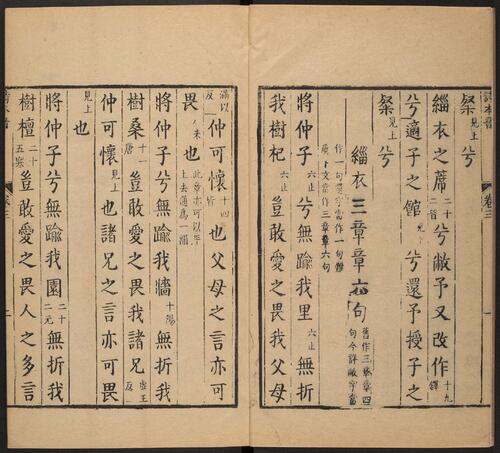 粲見上兮
緇衣之蓆二十二昔兮敝予又改作十九鐸
兮適子之館見上兮還予授子之
粲見上兮
緇衣三章章六句舊作三章章四句今詳敝字當
作一句還字當作一句下文當作三章章六句
將仲子六止兮無踰我里六止無折
我樹杞六止豈敢愛之畏我父母
滿以反仲可懷十四皆也父母之言亦可
畏八未也此章亦可以平上去通爲一韻
將仲子兮無踰我牆十陽無折我
樹桑十一唐豈敢愛之畏我諸兄虛王反
仲可懷見上也諸兄之言亦可畏
見上也
將仲子兮無踰我園二十二元無折我
樹檀二十五寒豈敢愛之畏人之多言
卷三